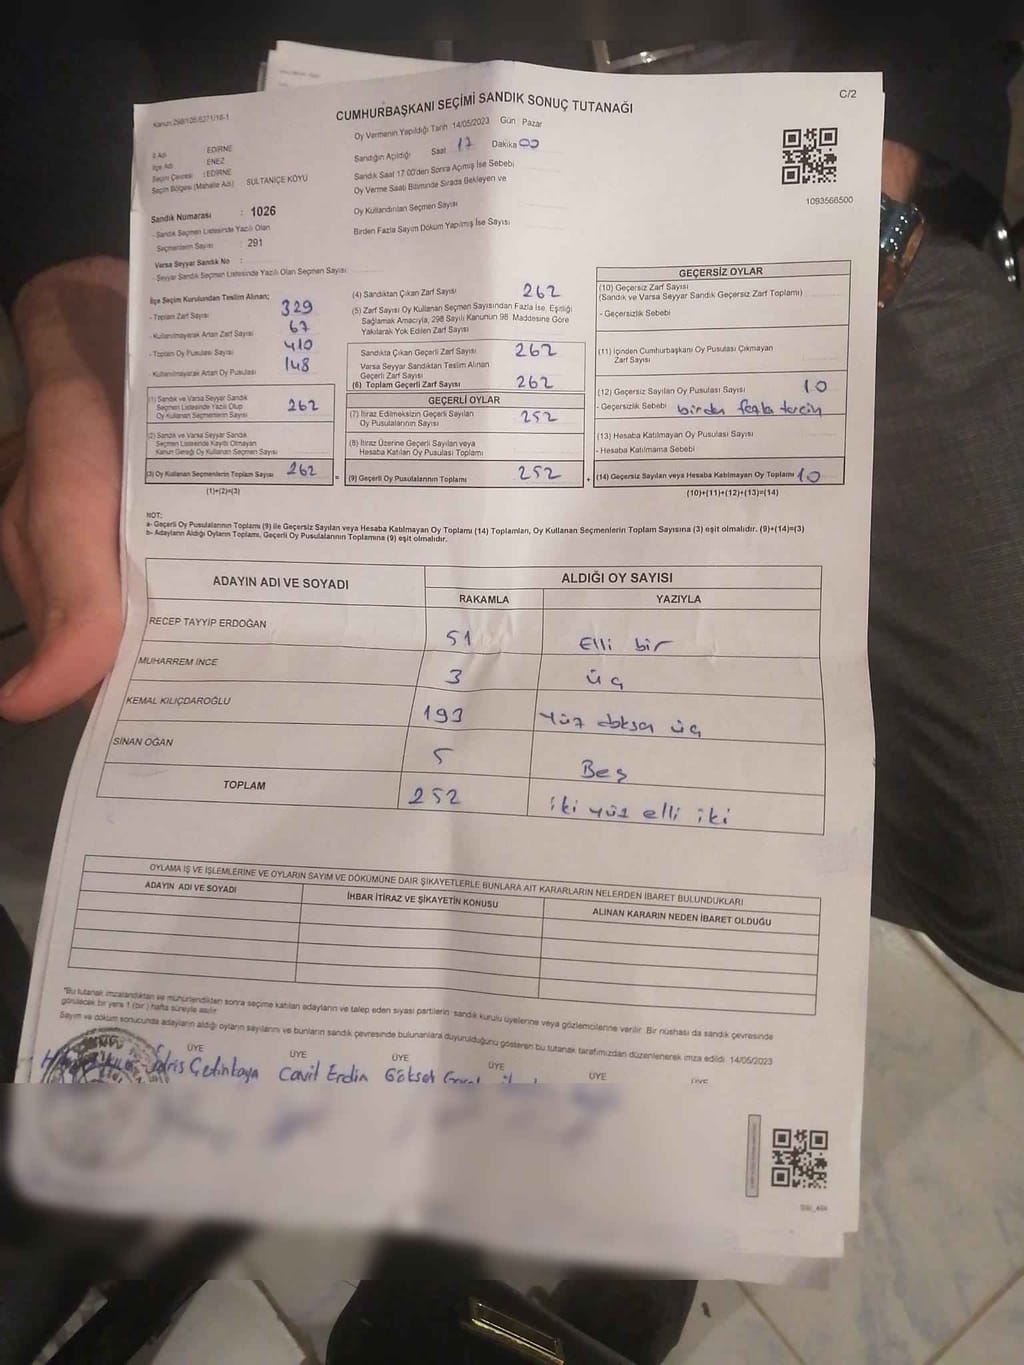 Kanun:298/105;6271/16-1
C/2
CUMHURBAŞKANI SEÇİMİ SANDIK SONUÇ TUTANAĞI
İl Adı : EDİRNE
İlçe Adı : ENEZ
Seçim Çevresi : EDİRNE
Seçim Bölgesi (Mahalle Adı) SULTANİÇE KÖYÜ
Oy Vermenin Yapıldığı Tarih 14/05/2023 Gün Pazar
Sandığın Açıldığı Saat 17 Dakika 00
Sandık Saat 17.00'den Sonra Açılmış İse Sebebi
Oy Verme Saati Bitiminde Sırada Bekleyen ve
Oy Kullandırılan Seçmen Sayısı
Birden Fazla Sayım Döküm Yapılmış İse Sayısı
1093566500
Sandık Numarası : 1026
- Sandık Seçmen Listesinde Yazılı Olan
Seçmenlerin Sayısı : 291
Varsa Seyyar Sandık No :
- Seyyar Sandık Seçmen Listesinde Yazılı Olan Seçmen Sayısı
İlçe Seçim Kurulundan Teslim Alınan;
- Toplam Zarf Sayısı 329
- Kullanılmayarak Artan Zarf Sayısı 67
- Toplam Oy Pusulası Sayısı 410
- Kullanılmayarak Artan Oy Pusulası 148
(1) Sandık ve Varsa Seyyar Sandık
Seçmen Listesinde Yazılı Olup
Oy Kullanan Seçmenlerin Sayısı 262
(2) Sandık ve Varsa Seyyar Sandık
Seçmen Listesinde Kayıtlı Olmayan
Kanun Gereği Oy Kullanan Seçmen Sayısı
(3) Oy Kullanan Seçmenlerin Toplam Sayısı 262 =
(1)+(2)=(3)
(4) Sandıktan Çıkan Zarf Sayısı 262
(5) Zarf Sayısı Oy Kullanan Seçmen Sayısından Fazla İse, Eşitliği
Sağlamak Amacıyla, 298 Sayılı Kanunun 98. Maddesine Göre
Yakılarak Yok Edilen Zarf Sayısı
Sandıkta Çıkan Geçerli Zarf Sayısı 262
Varsa Seyyar Sandıktan Teslim Alınan
Geçerli Zarf Sayısı
(6) Toplam Geçerli Zarf Sayısı 262
GEÇERLİ OYLAR
(7) İtiraz Edilmeksizin Geçerli Sayılan
Oy Pusulalarının Sayısı 252
(8) İtiraz Üzerine Geçerli Sayılan veya
Hesaba Katılan Oy Pusulası Toplamı
(9) Geçerli Oy Pusulalarının Toplamı 252 +
GEÇERSİZ OYLAR
(10) Geçersiz Zarf Sayısı
(Sandık ve Varsa Seyyar Sandık Geçersiz Zarf Toplamı)
- Geçersizlik Sebebi
(11) İçinden Cumhurbaşkanı Oy Pusulası Çıkmayan
Zarf Sayısı
(12) Geçersiz Sayılan Oy Pusulası Sayısı 10
- Geçersizlik Sebebi birden fazla tercih
(13) Hesaba Katılmayan Oy Pusulası Sayısı
- Hesaba Katılmama Sebebi
(14) Geçersiz Sayılan veya Hesaba Katılmayan Oy Toplamı 10
(10)+(11)+(12)+(13)=(14)
NOT:
a- Geçerli Oy Pusulalarının Toplamı (9) ile Geçersiz Sayılan veya Hesaba Katılmayan Oy Toplamı (14) Toplamları, Oy Kullanan Seçmenlerin Toplam Sayısına (3) eşit olmalıdır. (9)+(14)=(3)
b- Adayların Aldığı Oyların Toplamı, Geçerli Oy Pusulalarının Toplamına (9) eşit olmalıdır.
ADAYIN ADI VE SOYADI ALDIĞI OY SAYISI
RAKAMLA YAZIYLA
RECEP TAYYİP ERDOĞAN 51 Elli bir
MUHARREM İNCE 3 üç
KEMAL KILIÇDAROĞLU 193 Yüz doksan üç
SİNAN OĞAN 5 Beş
TOPLAM 252 iki yüz elli iki
OYLAMA İŞ VE İŞLEMLERİNE VE OYLARIN SAYIM VE DÖKÜMÜNE DAİR ŞİKAYETLERLE BUNLARA AİT KARARLARIN NELERDEN İBARET BULUNDUKLARI
ADAYIN ADI VE SOYADI İHBAR İTİRAZ VE ŞİKAYETİN KONUSU ALINAN KARARIN NEDEN İBARET OLDUĞU
*Bu tutanak imzalandıktan ve mühürlendikten sonra seçime katılan adayların ve talep eden siyasi partilerin sandık kurulu üyelerine veya gözlemcilerine verilir. Bir nüshası da sandık çevresinde
görülecek bir yere 1 (bir) hafta süreyle asılır.
Sayım ve döküm sonucunda adayların aldığı oyların sayılarını ve bunların sandık çevresinde bulunanlara duyurulduğunu gösteren bu tutanak tarafımızdan düzenlenerek imza edildi. 14/05/2023
ÜYE ÜYE ÜYE ÜYE ÜYE ÜYE
İdris Çetinkaya Cavit Erdin Göksel